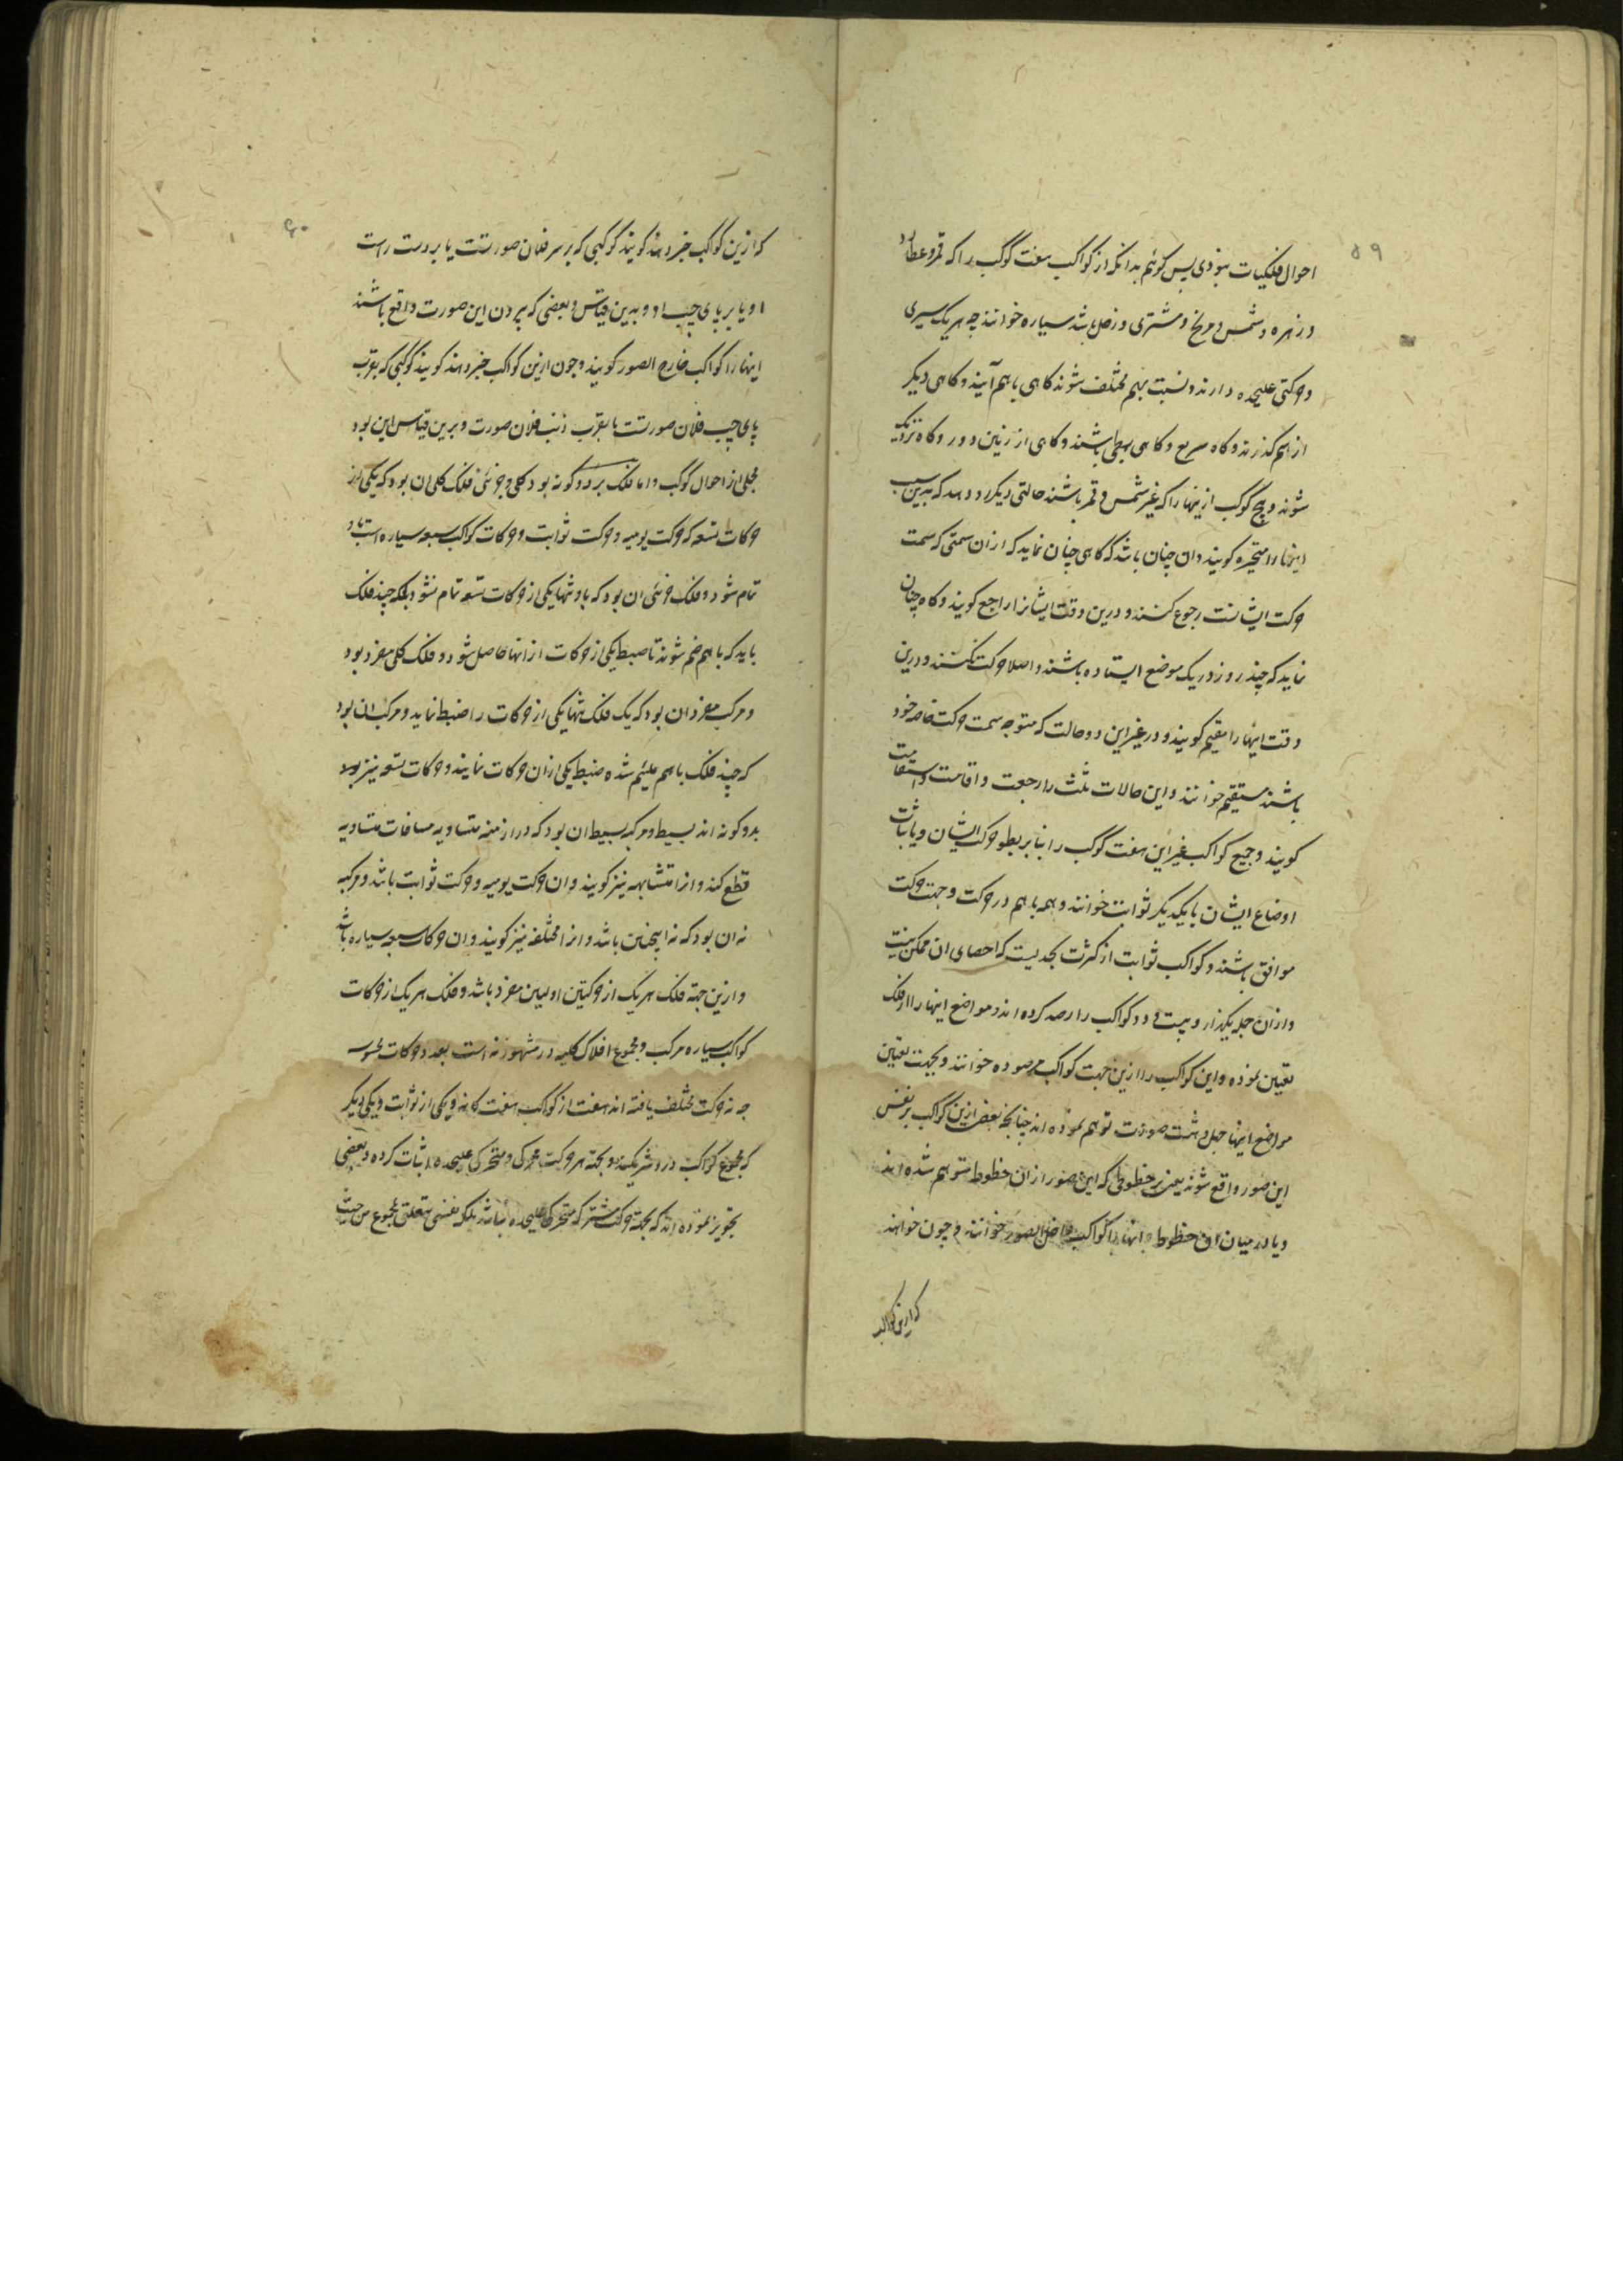 ۵۹
احوال فلکیات نبودی پس کوئیم بدانکه از کواکب هفت کوکب را که قمر و عطارد
و زهره و شمس و مریخ و مشتری و زحل باشد سیاره خوانند چه هر یک سیری
و حرکتی علیحده دارند و نسبت بهم مختلف شوند کاهی باهم آیند و کاهی دیکر
از هم کذرند و کاه سریع و کاهی بطی باشند و کاهی از زمین دور و کاه نزدیک
شوند و پنج کوکب از اینها را که غیر شمس و قمر باشند حالتی دیکر رو دهد که بدین سبب
اینها را متحیره کویند و ان چنان باشد که کاهی چنان نماید که از ان سمتی که سمت
حرکت ایشانست رجوع کنند و درین وقت ایشانرا راجع کویند و کاه چنان
نماید که چند روز در یک موضع ایستاده باشند و اصلا حرکت نکنند و درین
وقت اینها را مقیم کویند و در غیر این دو حالت که متوجه سمت حرکت خاصه خود
باشند مستقیم خوانند و این حالات ثلث را رجعت و اقامت و استقامت
کویند و جمیع کواکب غیر این هفت کوکب را بنا بر بطو حرکت ایشان و یا ثبات
اوضاع ایشان با یکدیکر ثوابت خوانند و همه باهم در حرکت و جهت حرکت
موافق باشند و کواکب ثوابت از کثرت بحدیست که احصای ان ممکن نیست
و از ان جمله یکهزار و بیست و دو کواکب را رصد کرده اند و مواضع اینها را از فلک
تعیین نموده و این کواکب را ازین جهت کواکب مرصوده خوانند و بجهت تعیین
مواضع اینها چهل و هشت صورت توهم نموده اند چنانچه بعض ازین کواکب بر نفس
این صور واقع شوند یعنی بر خطوطی که این صور از ان خطوط متوهم شده اند
و یا در میان ان خطوط و انها را کواکب داخل الصور خوانند و چون خواهند
که ازین کواکب
۶۰
که ازین کواکب خبر دهند کویند کوکبی که بر سر فلان صورتست یا بر دست راست
او یا بر پای چپ او و بدین قیاس و بعضی که بیرون این صورت واقع باشند
اینها را کواکب خارج الصور کویند و چون ازین کواکب خبر دهند کویند کوکبی که بقرب
پای چپ فلان صورتست یا بقرب ذنب فلان صورت و برین قیاس این بود
مجملی از احوال کوکب و اما فلک بر دو کونه بود کلی و جزئی فلک کلی ان بود که یکی از
حرکات تسعه که حرکت یومیه و حرکت ثوابت و حرکات کواکب سبعه سیاره است باو
تمام شود و فلک جزئی ان بود که باو تنها یکی از حرکات تسعه تمام نشود بلکه چند فلک
باید که باهم ضم شوند تا ضبط یکی از حرکات از انها حاصل شود و فلک کلی مفرد بود
و مرکب مفرد ان بود که یک فلک تنها یکی از حرکات را ضبط نماید و مرکب ان بود
که چند فلک باهم ملتئم شده ضبط یکی از ان حرکات نمایند و حرکات تسعه نیز بود
بدو کونه اند بسیط و مرکبه بسیط ان بود که در ازمنه متساویه مسافات متساویه
قطع کند و انرا متشابهه نیز کویند و ان حرکت یومیه و حرکت ثوابت باشد و مرکبه
نه ان بود که نه اینچنین باشد و انرا مختلفه نیز کویند و ان حرکات سبعه سیاره باشد
و ازین جهة فلک هر یک از حرکتین اولیین مفرد باشد و فلک هر یک از حرکات
کواکب سیاره مرکب و مجموع افلاک کلیه در مشهور نه است بعدد حرکات محسوسه
چه نه حرکت مختلف یافته اند هفت از کواکب هفت کانه و یکی از ثوابت و یکی دیکر
که مجموع کواکب در و شریکند و بجهة هر حرکت محرکی و متحرکی علیحده اثبات کرده و بعضی
تجویز نموده اند که بجهة حرکت مشترکه متحرکی علیحده نباشد بلکه نفسی متعلق بمجموع من حیث